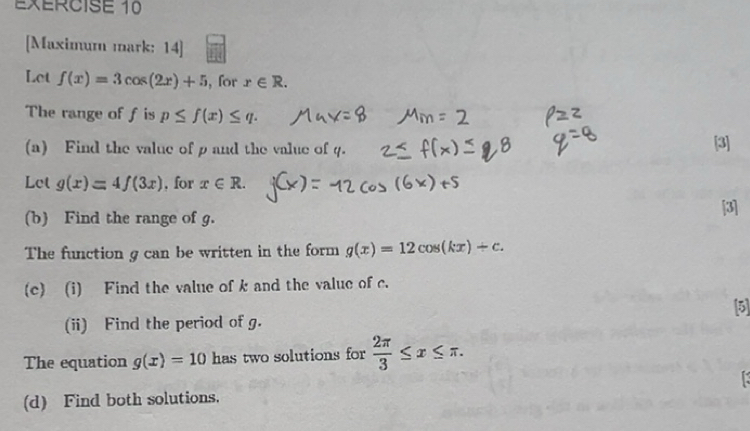 EXERCISE 10
[Maximum mark: 14]
Let f(x) = 3 cos(2x) + 5, for x ∈ ℝ.
The range of f is p ≤ f(x) ≤ q. Max=8 Min=2 p=2
(a) Find the value of p and the value of q. 2≤ f(x) ≤ 8 q=8 [3]
Let g(x) = 4f(3x), for x ∈ ℝ. g(x) = 12 cos (6x)+5
(b) Find the range of g. [3]
The function g can be written in the form g(x) = 12 cos(kx) + c.
(c) (i) Find the value of k and the value of c.
[5]
(ii) Find the period of g.
The equation g(x) = 10 has two solutions for 2π/3 ≤ x ≤ π.
(d) Find both solutions.